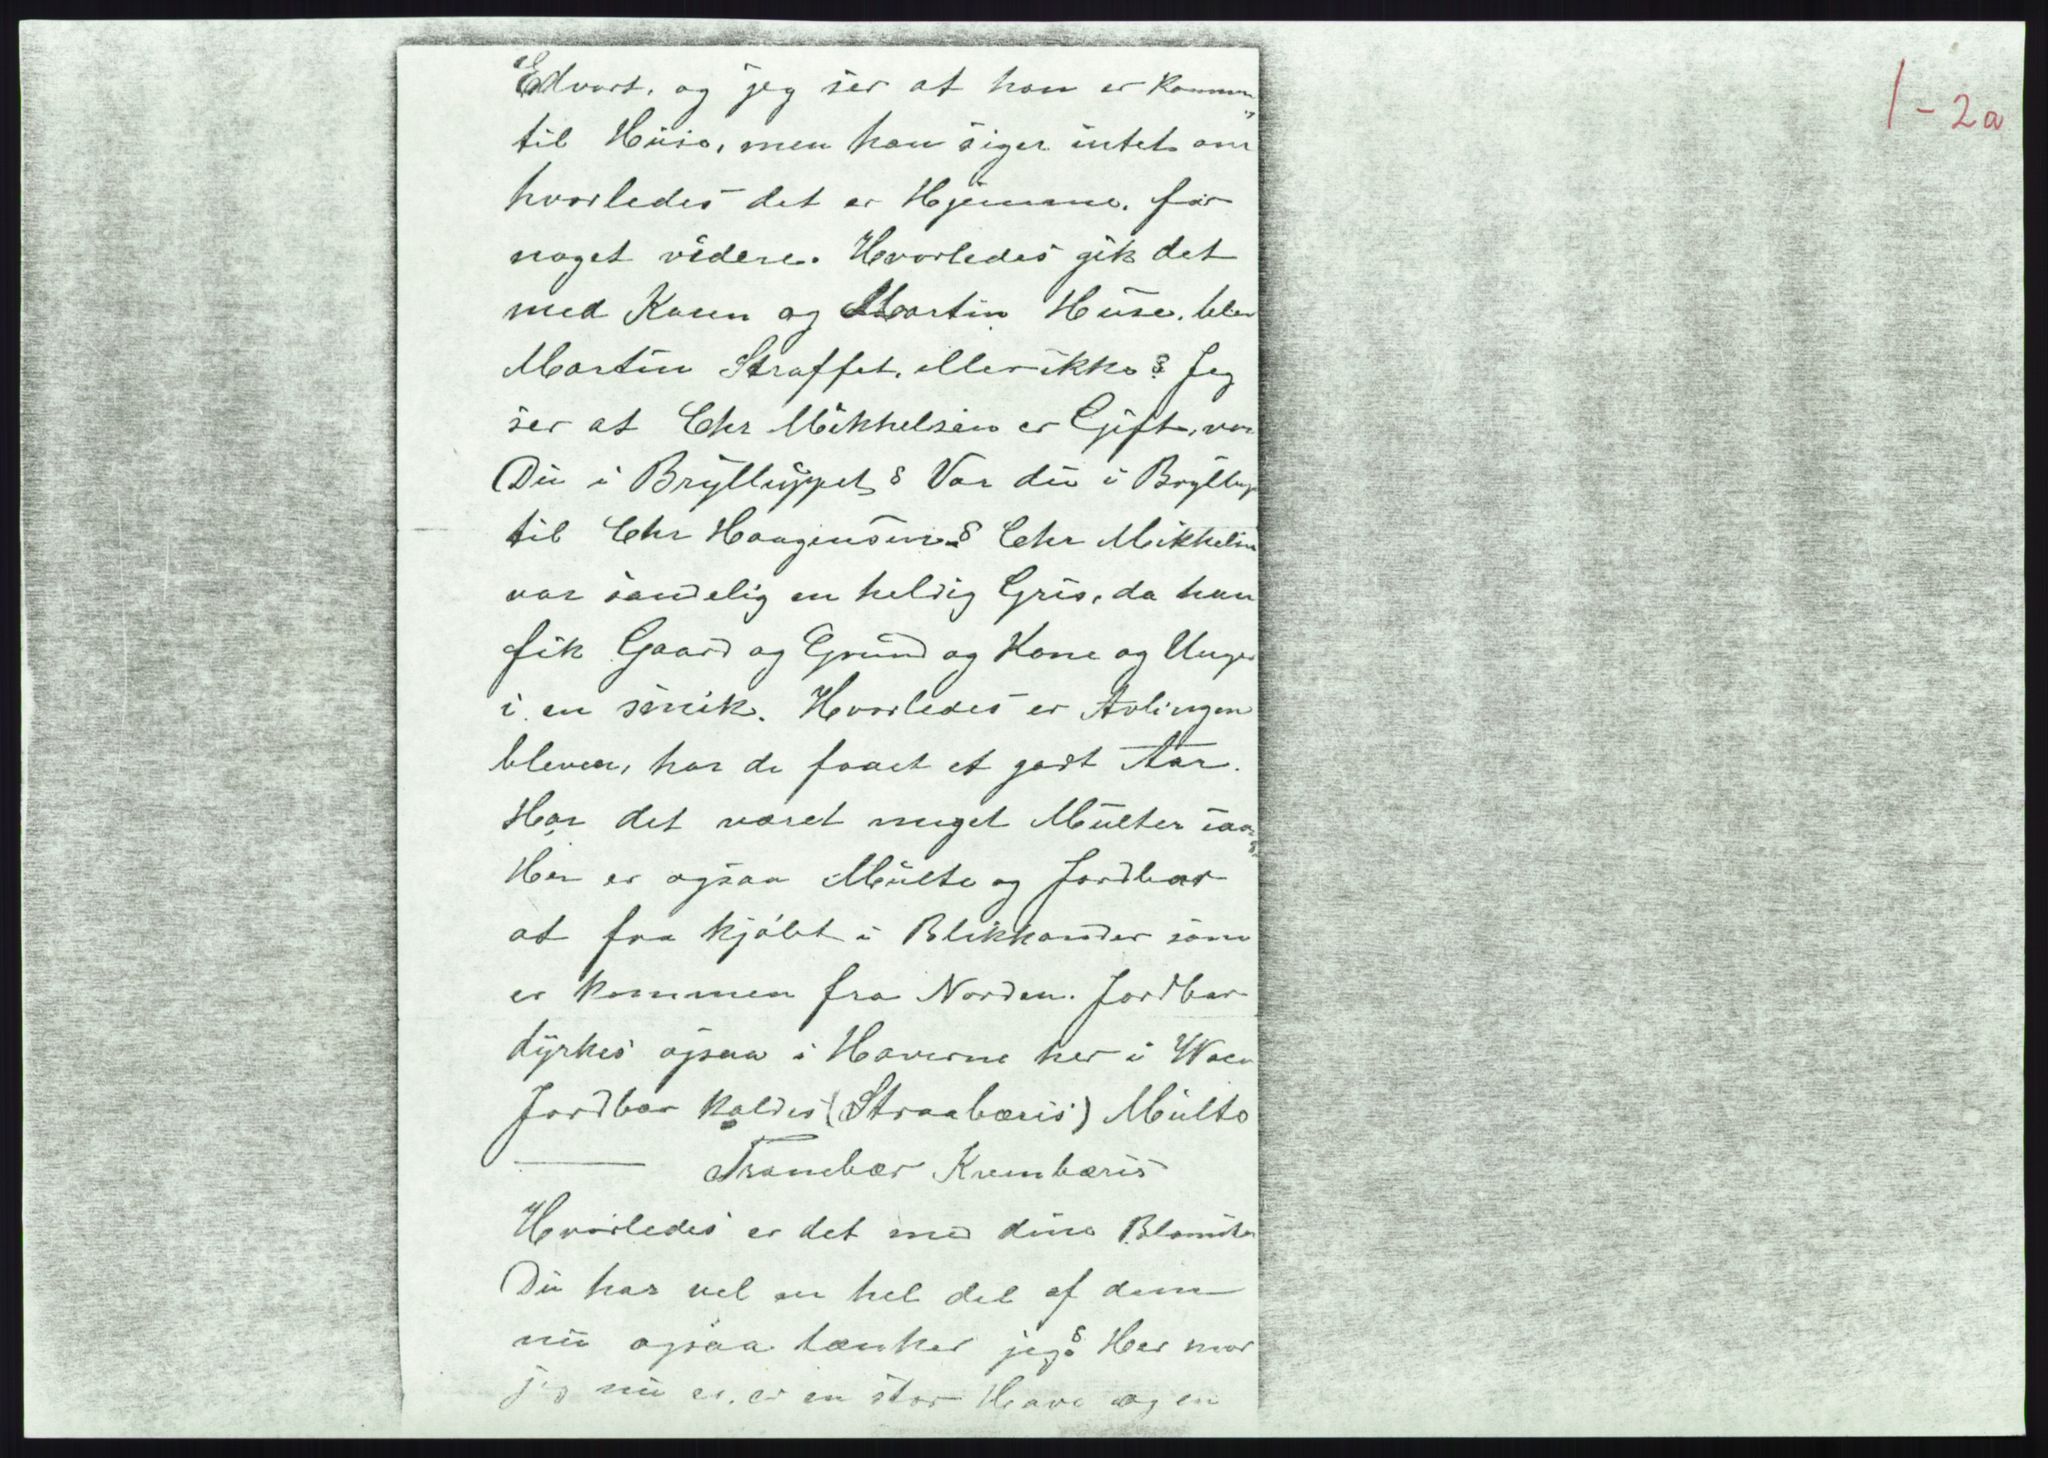 1-2a
Edvart, og jeg ser at han er kommen
til Huse, men han siger intet om
hvorledes det er Hjemme, før
noget videre. Hvorledes gik det
med Karen og Martin Huse, blev
Martin Straffet, eller ikke? Jeg
ser at Chr Mikkelsen er Gift, var
Du i Brylluppet? Var du i Bryllup
til Chr Haagensen? Chr Mikkelsen
var sandelig en heldig Gris, da han
fik Gaard og Grund og Kone og Unger
i en smik. Hvorledes er Avlingen
bleven, har de faaet et godt Aar.
Har det været meget Multer iaar?
Her er ogsaa Multe og Jordbær
at faa kjøbt i Blikkander som
er kommen fra Norden. Jordbær
dyrkes ogsaa i Haverne her i Waco
Jordbær kaldes (Straabæris) Multe
Tranebær Krembæris
Hvorledes er det med dine Blomster
Du har vel en hel del af dem
nu ogsaa tænker jeg? Her hvor
jeg nu er, er en stor Have og en